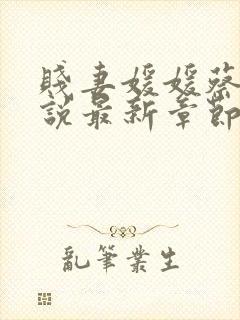 賤妻媛媛蔡
說最新章節
亂筆叢生